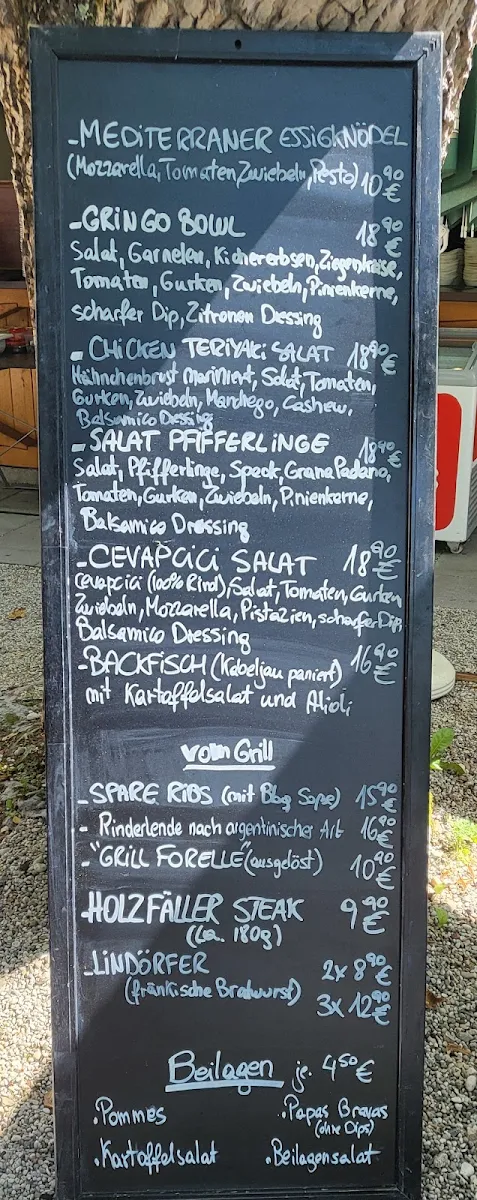 -MEDITERRANER ESSIGKNÖDEL
(Mozzarella, Tomaten, Zwiebeln, Pesto) 10,90 €
-GRINGO BOWL 18,90 €
Salat, Garnelen, Kichererbsen, Ziegenkäse,
Tomaten, Gurken, Zwiebeln, Pinienkerne,
scharfer Dip, Zitronen Dressing
- CHICKEN TERIYAKI SALAT 18,90 €
Hähnchenbrust mariniert, Salat, Tomaten,
Gurken, Zwiebeln, Manchego, Cashew,
Balsamico Dessing
- SALAT PFIFFERLINGE 18,90 €
Salat, Pfifferlinge, Speck, Grana Padano,
Tomaten, Gurken, Zwiebeln, Pinienkerne,
Balsamico Dressing
-CEVAPCICI SALAT 18,90 €
cevapcici (100% Rind), Salat, Tomaten, Gurken,
Zwiebeln, Mozzarella, Pistazien, scharfer Dip,
Balsamico Dressing
-BACKFISCH (Kabeljau paniert) 16,90 €
mit Kartoffelsalat und Alioli
vom Grill
-SPARE RIBS (mit Bbq Sope) 15,90 €
- Rinderlende nach argentinischer Art 16,90 €
-"GRILL FORELLE" (ausgelöst) 10,90 €
-HOLZFÄLLER STEAK 9,90 €
(ca. 180g)
-LINDÖRFER 2x 8,90 €
(fränkische Bratwurst) 3x 12,90 €
Beilagen je. 4,50 €
.Pommes .Papas Bravas
(ohne Dips)
.Kartoffelsalat .Beilagensalat